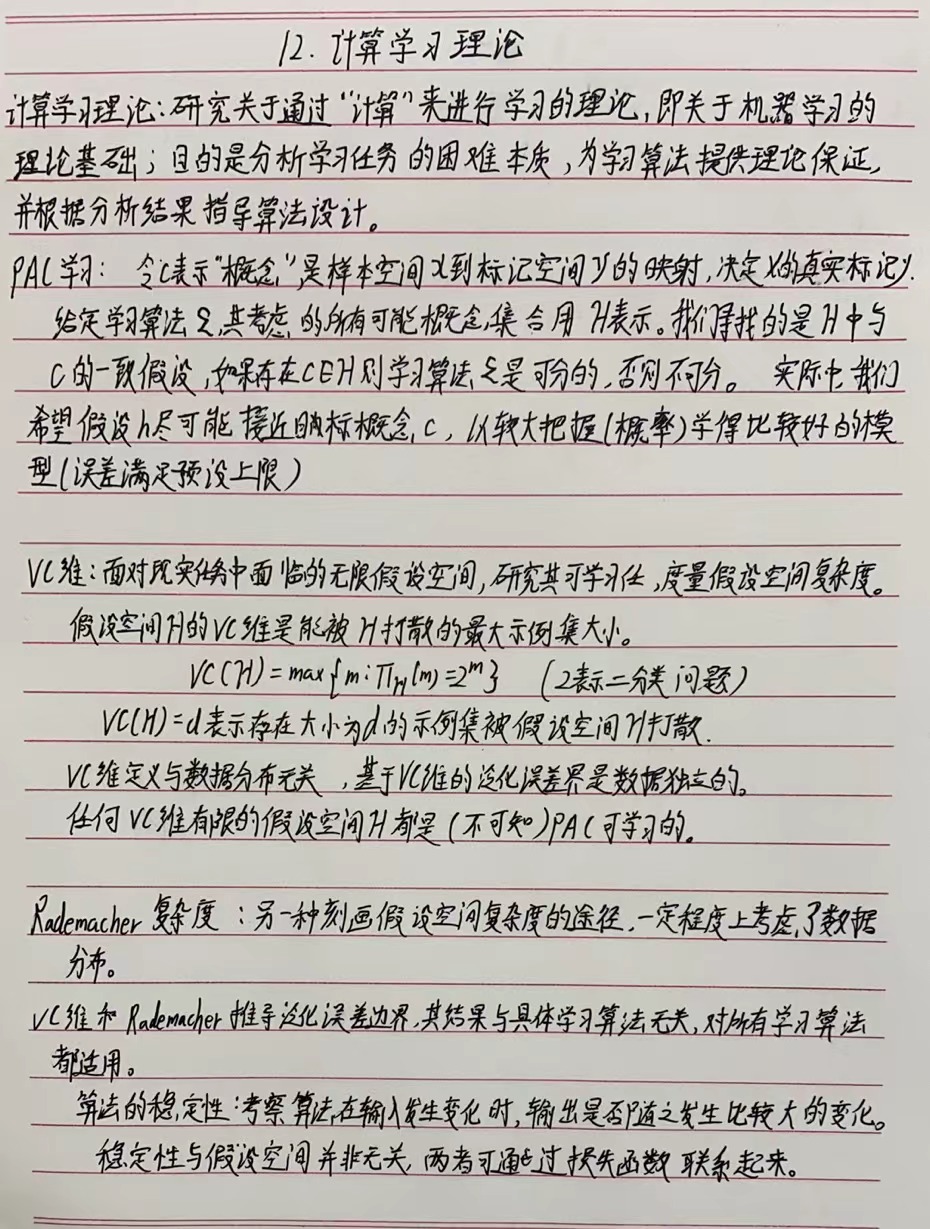 12. 计算学习理论
计算学习理论:研究关于通过“计算”来进行学习的理论,即关于机器学习的
理论基础;目的是分析学习任务的困难本质,为学习算法提供理论保证,
并根据分析结果指导算法设计。
PAC学习: 令c表示“概念”,是样本空间X到标记空间Y的映射,决定x的真实标记y.
给定学习算法ξ,其考虑的所有可能概念集合用H表示。我们寻找的是H中与
C的一致假设,如果存在C∈H则学习算法ξ是可分的,否则不可分。 实际中我们
希望假设h尽可能接近目标概念c,以较大把握(概率)学得比较好的模
型(误差满足预设上限)
VC维:面对现实任务中面临的无限假设空间,研究其可学习任,度量假设空间复杂度。
假设空间H的VC维是能被H打散的最大示例集大小。
VC(H)=max{m:∏H(m)=2^m} (2表示二分类问题)
VC(H)=d表示存在大小为d的示例集被假设空间H打散.
VC维定义与数据分布无关,基于VC维的泛化误差界是数据独立的。
任何VC维有限的假设空间H都是(不可知)PAC可学习的。
Rademacher 复杂度:另一种刻画假设空间复杂度的途径,一定程度上考虑了数据
分布。
VC维和Rademacher推导泛化误差边界,其结果与具体学习算法无关,对所有学习算法
都适用。
算法的稳定性:考察算法在输入发生变化时,输出是否随之发生比较大的变化。
稳定性与假设空间并非无关,两者可通过损失函数联系起来。